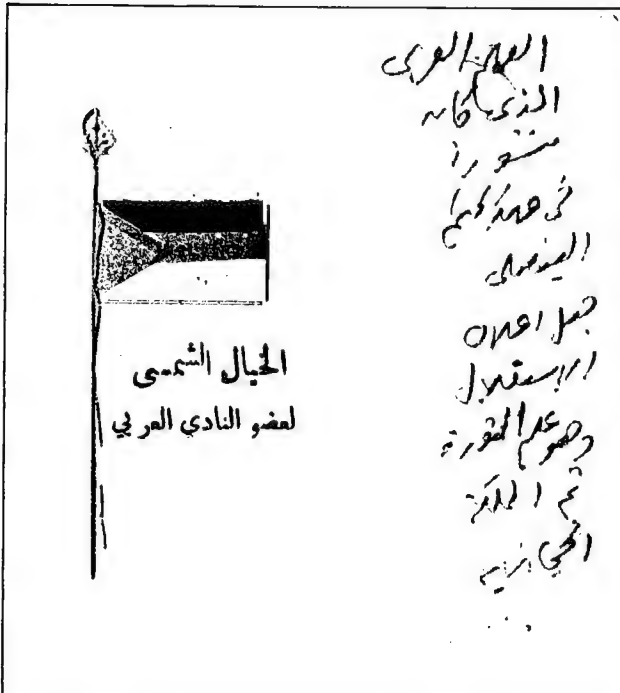 العلم العربى
الذى كان
منشورا
فى عهد الحكم
الفيصلى
قبل اعلان
الاستقلال
وهو علم الثورة
ثم المملكة
الحجازية
الخيال الشمسى
لعضو النادي العربي